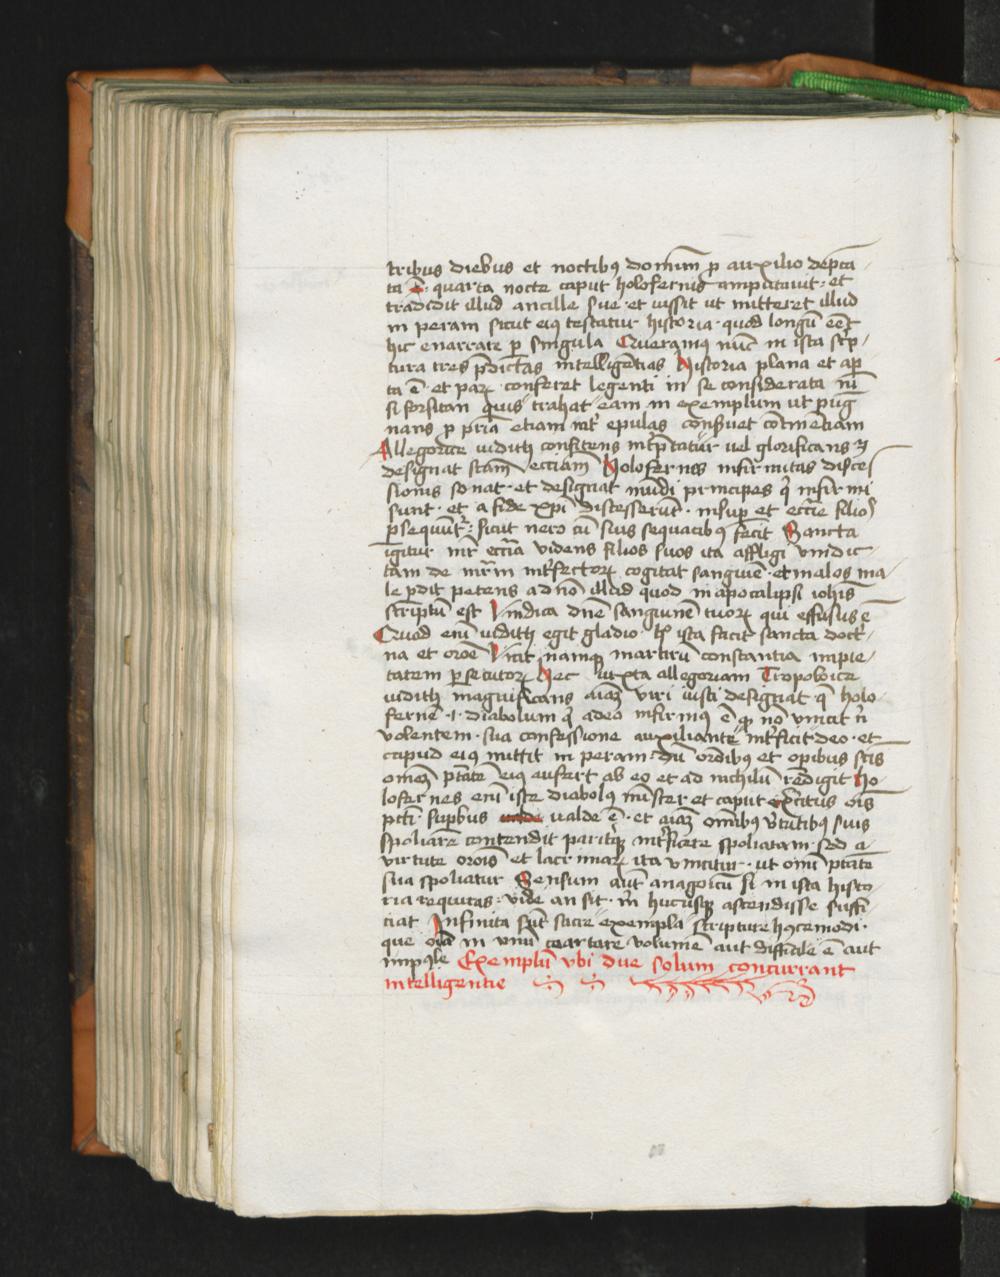 tribus diebus et noctibꝰ dominū p auxilio dep̄ca
ta ē· quarta nocte caput holofernis amputauit· et
tradidit illud ancille sue· et iussit ut mitteret illud
in peram sicut eiꝰ testatur historia· quod longū eēt
hic enarrare p singula Queramꝰ nūc in ista sc̄p
tura tres p̄dictas intelligētias Historia plana et ap
ta ē· et parꝝ conferet legenti in se considerata nī
si forsitan quis trahat eam in exemplum ut pug
nans p pr̄ia etiam int̄ epulas
Allegorice iudith confitens int̄p̄tatur uel glorificans
designat sc̄am eccīam Holofernes infirmitas disce
sionis sonat· et designat mūdi principes q̄ infirmi
sunt· et a fide xp̄i discesserūt· insup et ecc̄ie filio
psequūt̄· sicut nero cū suis sequacibꝰ fecit Sancta
igitur mr̄ ecc̄ia videns filios suos ita affligi vindic
tam de int̄fectorꝝ cogitat sanguiē· et malos ma
le p̄dit petens a dn̄o illud quod in apocalipsi ioh̄is
scriptū est Vindica dn̄e sanguinē tuorꝝ qui effusus ē
Quod enī iudith egit gladio· h̄ ista facit sancta doct̄
na et or̄oe Vicit namqꝫ martirū constantia impie
tatem psecutorꝝ Hec iuxta allegoriam Tropoloice
iudith magnificans aīaꝫ viri iusti designat q̄ holo
fernē ·i· diabolum q̄ adeo infirmꝰ ē qꝫ nō vincit n̄
volentem· sua confessione auxiliante int̄ficit deo· et
capud eiꝰ mittit in peram· dū or̄oibꝰ et opibus sc̄is
om̄eꝫ p̄tatē eiꝰ aufert ab eo et ad nichilū redigit Ho
lofernes enī iste diabolꝰ mīster et caput ex̄citus ōis
pcti· supbus ualde ē· et aīaꝫ om̄ibꝰ v̄tutibꝰ suis
spoliare contendit paritqꝫ int̄ficere spoliatam· sed a
virtute or̄ois et lacrimarꝝ ita vincitur· ut om̄i p̄tate
sua spoliatur Sensum aut̄ anagoicū si in ista histo
ria requiras· vide an sit· m̄ hucusqꝫ ascendisse suffi
ciat Infinita sūt sacre exempla scripture hꝰcemodi·
que ōia in vnū coartare volumē aut difficile ē aut
imp̄ile Exemplū vbi due solum concurrant
intelligentie